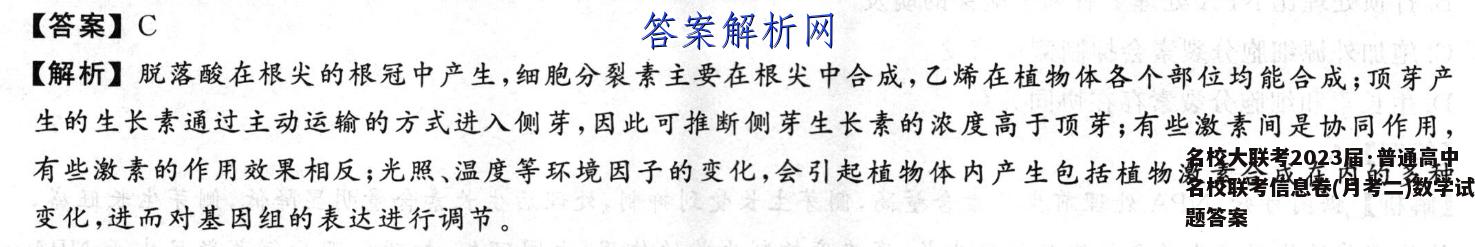 【答案】C
答案解析网
【解析】脱落酸在根尖的根冠中产生,细胞分裂素主要在根尖中合成,乙烯在植物体各个部位均能合成;顶芽产
生的生长素通过主动运输的方式进入侧芽,因此可推断侧芽生长素的浓度高于顶芽;有些激素间是协同作用,
有些激素的作用效果相反;光照、温度等环境因子的变化,会引起植物体内产生包括植物激素合成在内的多种
变化,进而对基因组的表达进行调节。
名校大联考2023届·普通高中
名校联考信息卷(月考二)数学试
题答案